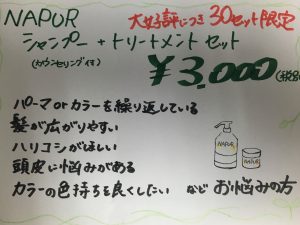 NAPUR
大好評につき 30セット限定
シャンプー + トリートメント セット
(カウンセリング付)
¥3,000 (税別)
パーマorカラーを繰り返している
髪が広がりやすい
ハリコシがほしい
頭皮に悩みがある
カラーの色持ちを良くしたい など お悩みの方
NAPUR
NAPUR